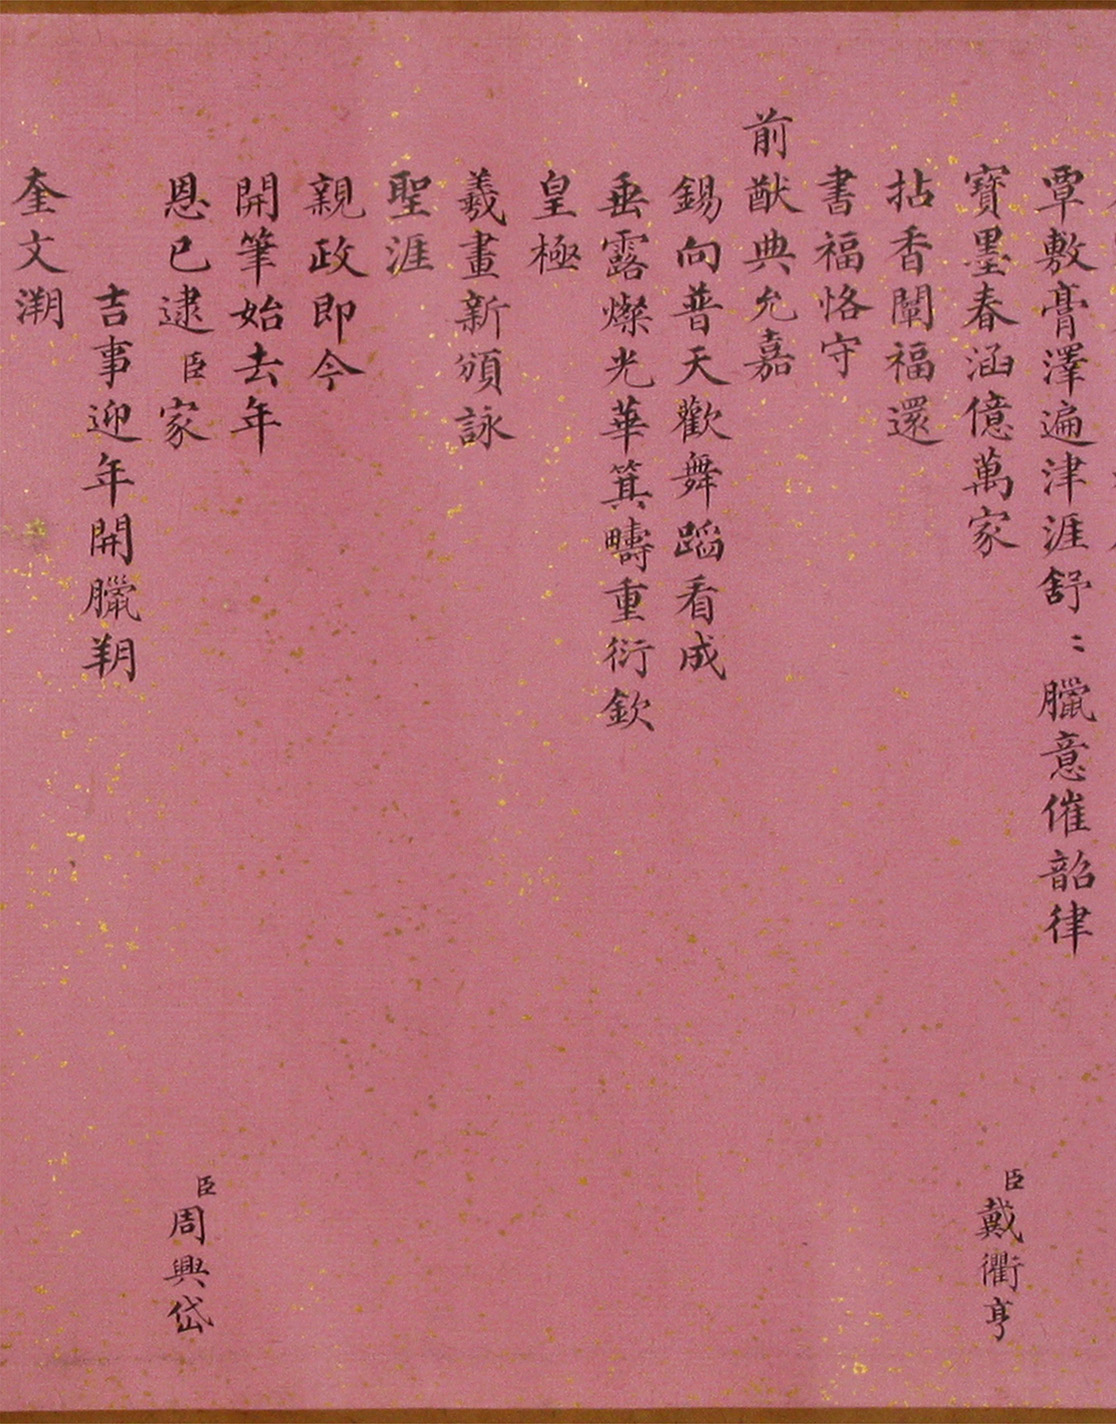 覃敷膏澤遍津涯舒〻臘意催韶律
寶墨春涵億萬家
臣戴衢亨
拈香闡福還
書福恪守
前猷典允嘉
錫向普天歡舞蹈看成
垂露燦光華箕疇重衍欽
皇極
羲畫新頒詠
聖涯
親政即今
開筆始去年
恩已逮臣家
臣周興岱
吉事迎年開臘朔
奎文溯